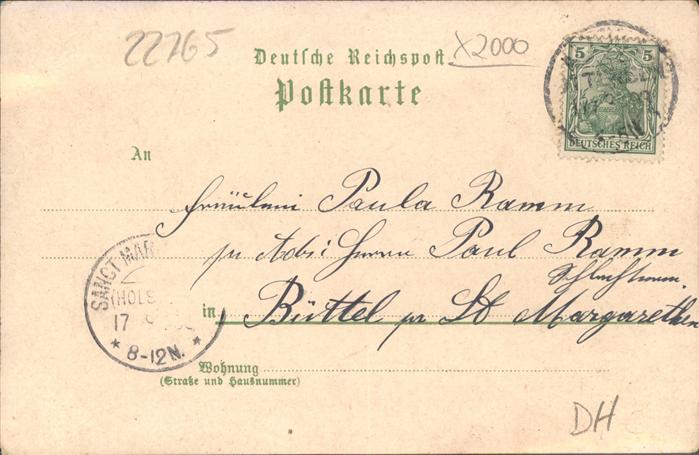 22765
x2000
Deutsche Reichspost
Postkarte
5 5
DEUTSCHES REICH
An
Fräulein Paula Ramm
pr Adr: Herrn Paul Ramm
in Büttel pr St Margarethen
SANCT MAR
(HOLS
17
* 8-12N. *
Wohnung
(Straße und Hausnummer)
DH